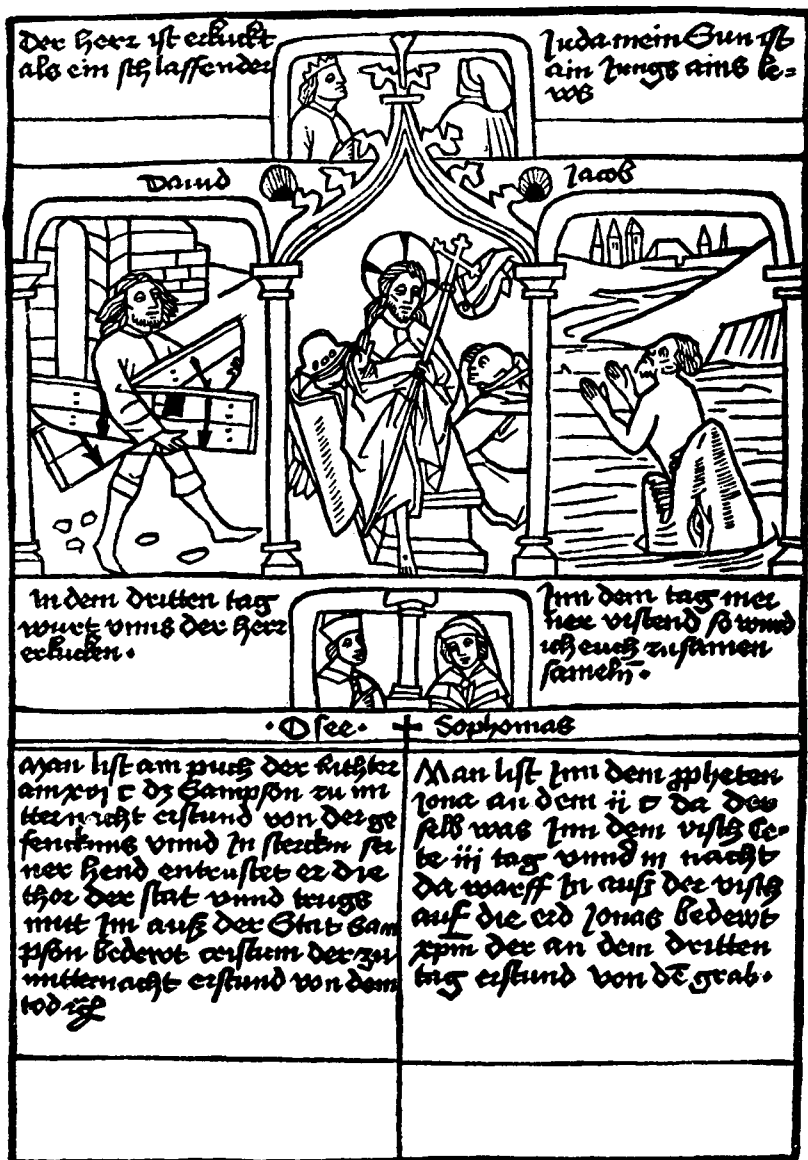 Der herr ist erkuckt
als ein schlaffender
Juda mein Sun ist
ain Jungs ains le-
ws
Dauid
Jacob
In dem dritten tag
wurtz vnns der herr
erkucken.
Jnn dem tag mei
ner vistend so wird
ich euch zusamen
sameln̄.
.Osee.
Sophomas
Man list am puch der Richter
am xvj c dz Sampson zu mi
tternacht erstund von der ge
fencknns vnnd Jn sterckin sei
ner hend entrustet er die
thor der stat vnnd trugs
mitt Jm auß der Stat Sam
pson bedewt cristum der zu
mitternacht erstund von dem
tod
Man list Jnn dem ppheten
Jona an dem ij c da der
selb was Jnn dem visch Ce-
te iij tag vnnd iij nacht
da warff Jn auß der visch
auf die erd Jonas bedewt
xpm̄ der an dem dritten
tag erstund von dē grab.